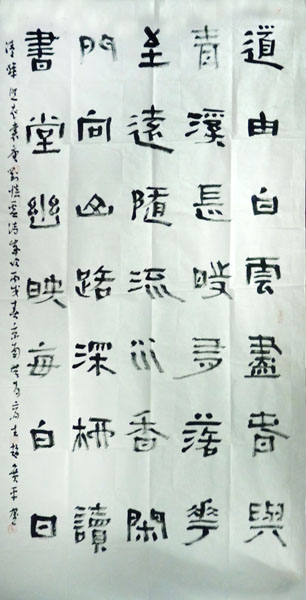 道由白雲盡春與
青溪長時有落花
至遠隨流水香閑
門向山路深柳讀
書堂幽映每白日
清輝照衣裳 丙戌春京南